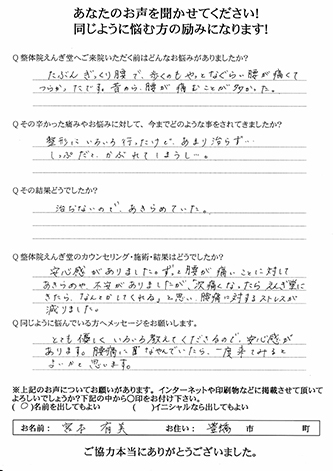 あなたのお声を聞かせてください!
同じように悩む方の励みになります!
Q 整体院えんぎ堂へご来院いただく前はどんなお悩みがありましたか?
たぶん ぎっくり腰で、歩くのもやっとなぐらい腰が痛くて
つらかったです。昔から、腰が痛むことが多かった。
Q その辛かった痛みやお悩みに対して、今までどのような事をされてきましたか?
整形にいろいろ行ったけど、あまり治らず…
しっぷだと、かぶれてしまうし…。
Q その結果どうでしたか?
治らないので、あきらめていた。
Q 整体院えんぎ堂のカウンセリング・施術・結果はどうでしたか?
安心感がありました。ずっと腰が痛いことに対して
あきらめや、不安がありましたが、「次痛くなったら えんぎ堂に
きたら、なんとかしてくれる」と思い、腰痛に対するストレスが
減りました。
Q 同じように悩んでいる方へメッセージをお願いします。
とても優しく いろいろ教えてくださるので、安心感が
あります。腰痛に なやんでいたら、一度来てみると
よいかと思います。
※上記のお声についてお願いがあります。インターネットや印刷物などに掲載させて頂いて
よろしいでしょうか?下記の中から〇印をお付け下さい。
(〇)名前を出してもよい ( )イニシャルなら出してもよい
お名前: 宮本 有美 お住い: 豊橋 市 町
ご協力本当にありがとうございました。